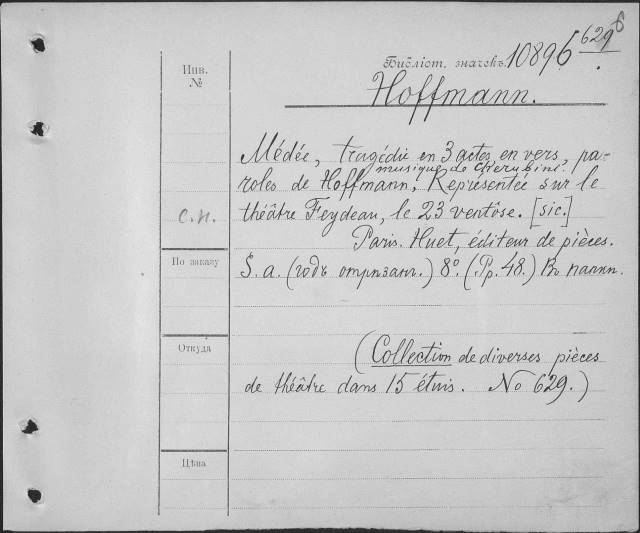 Инв.
№
Библіот. значекъ. 10896 629
Hoffmann.
Médée, tragédie en 3 actes, en vers, pa-
musique de Cherubini.
roles de Hoffmann, Représentée sur le
c.n.
théâtre Feydeau, le 23 ventôse. [sic.]
Paris. Huet, éditeur de pièces.
По заказу
S. a. (годъ отрѣзанъ.) 8º. (Pp. 48.) Въ папкѣ.
Откуда
(Collection de diverses pièces
de théâtre dans 15 étuis. No 629.)
Цѣна